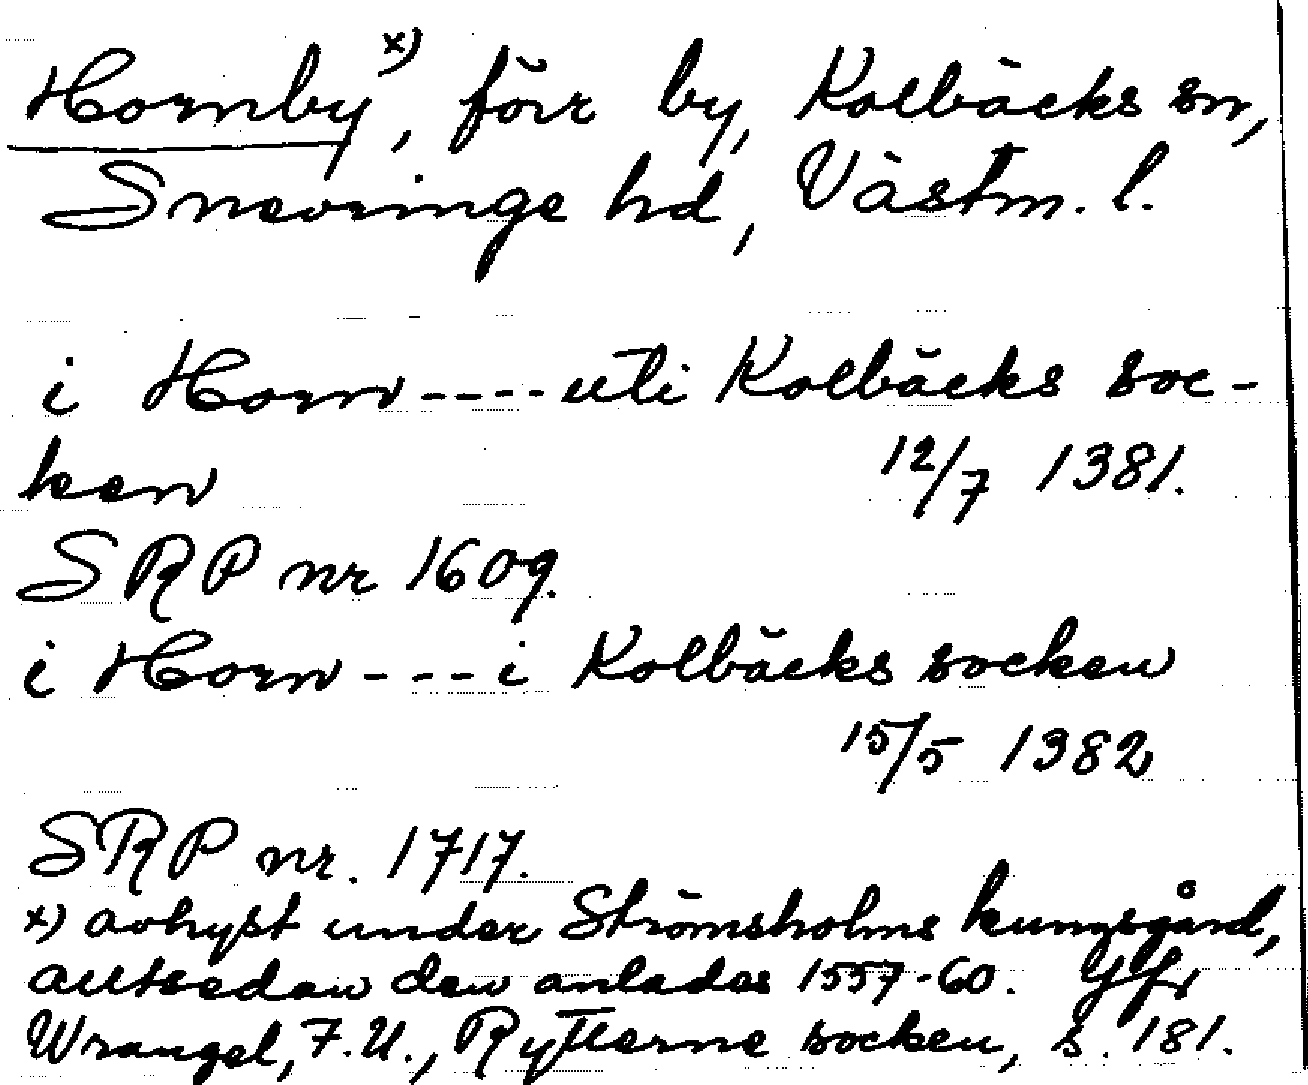 Hornby x), förr by, Kolbäcks sn,
Snevringe hd, Västm. l.
i Horn ---- uti Kolbäcks soc-
ken 12/7 1381.
SRP nr 1609.
i Horn --- i Kolbäcks socken
15/5 1382
SRP nr. 1717.
x) avhyst under Strömsholms kungsgård,
alltsedan den anlades 1557-60. Jfr
Wrangel, F.U., Rytterne socken, s. 181.